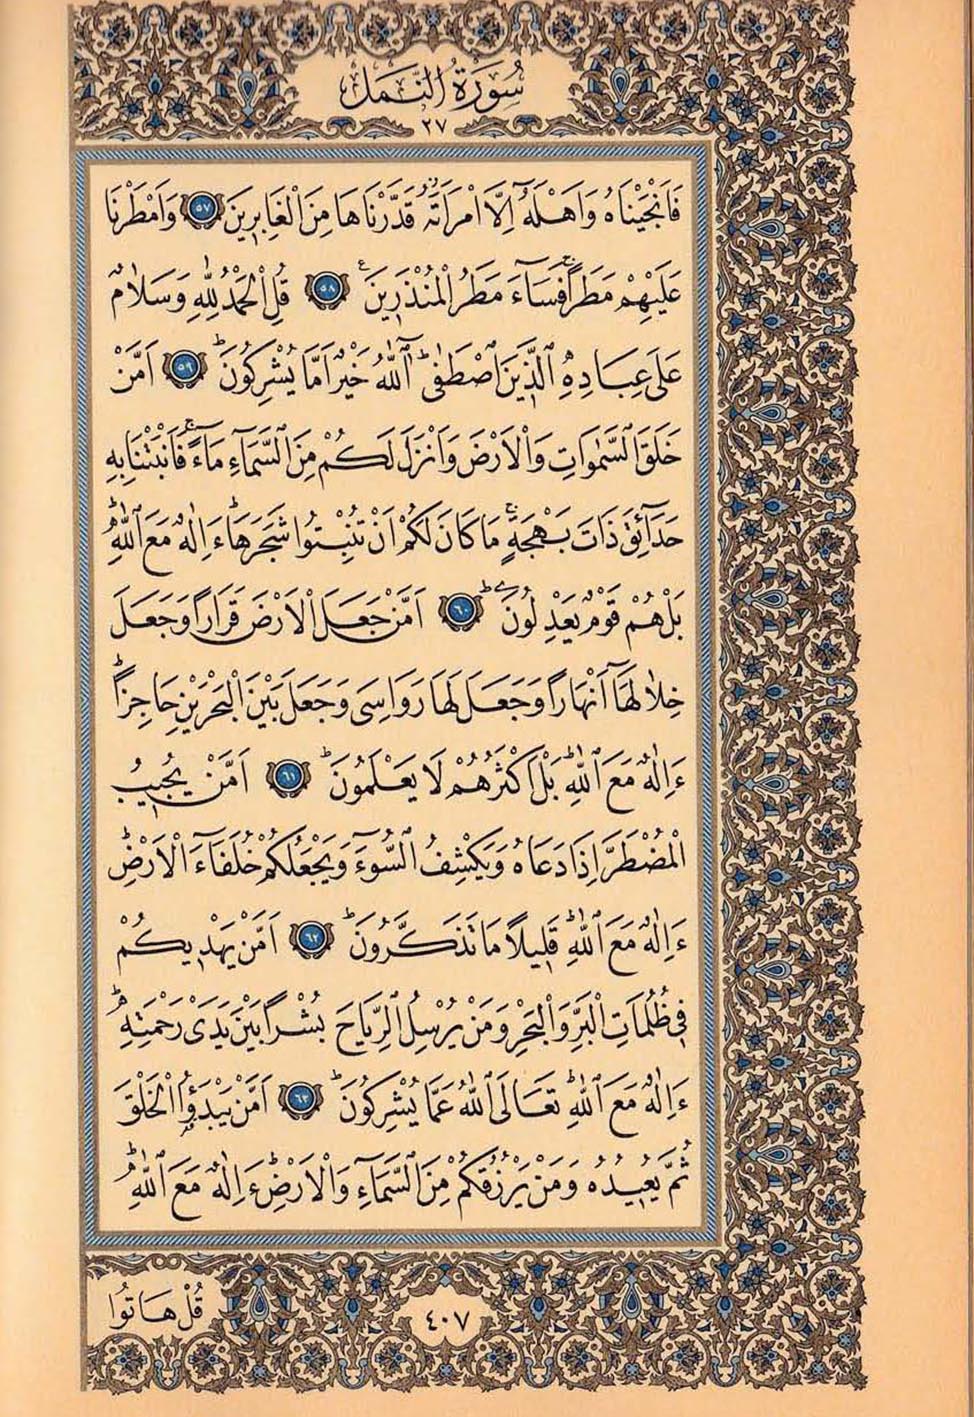 سُورَةُ النَّمْلِ
٢٧
فَاَنْجَيْنَاهُ وَاَهْلَهُٓ اِلَّا امْرَاَتَهُۘ قَدَّرْنَاهَا مِنَ الْغَابِرٖينَ ﴿٥٧﴾ وَاَمْطَرْنَا
عَلَيْهِمْ مَطَرًاۚ فَسَٓاءَ مَطَرُ الْمُنْذَرٖينَ ع ﴿٥٨﴾ قُلِ الْحَمْدُ لِلّٰهِ وَسَلَامٌ
عَلٰى عِبَادِهِ الَّذٖينَ اصْطَفٰىؕ آٰللّٰهُ خَيْرٌ اَمَّا يُشْرِكُونَؕ ﴿٥٩﴾ اَمَّنْ
خَلَقَ السَّمٰوَاتِ وَالْاَرْضَ وَاَنْزَلَ لَكُمْ مِنَ السَّمَٓاءِ مَٓاءًۚ فَاَنْبَتْنَا بِهٖ
حَدَٓائِقَ ذَاتَ بَهْجَةٍۚ مَا كَانَ لَكُمْ اَنْ تُنْبِتُوا شَجَرَهَاؕ ءَاِلٰهٌ مَعَ اللّٰهِؕ
بَلْ هُمْ قَوْمٌ يَعْدِلُونَؕ ﴿٦٠﴾ اَمَّنْ جَعَلَ الْاَرْضَ قَرَارًا وَجَعَلَ
خِلَالَهَٓا اَنْهَارًا وَجَعَلَ لَهَا رَوَاسِىَ وَجَعَلَ بَيْنَ الْبَحْرَيْنِ حَاجِزًاؕ
ءَاِلٰهٌ مَعَ اللّٰهِؕ بَلْ اَكْثَرُهُمْ لَا يَعْلَمُونَؕ ﴿٦١﴾ اَمَّنْ يُجٖيبُ
الْمُضْطَرَّ اِذَا دَعَاهُ وَيَكْشِفُ السُّٓوءَ وَيَجْعَلُكُمْ خُلَفَٓاءَ الْاَرْضِؕ
ءَاِلٰهٌ مَعَ اللّٰهِؕ قَلٖيلًا مَا تَذَكَّرُونَؕ ﴿٦٢﴾ اَمَّنْ يَهْدٖيكُمْ
فٖى ظُلُمَاتِ الْبَرِّ وَالْبَحْرِ وَمَنْ يُرْسِلُ الرِّيَاحَ بُشْرًا بَيْنَ يَدَىْ رَحْمَتِهٖؕ
ءَاِلٰهٌ مَعَ اللّٰهِؕ تَعَالَى اللّٰهُ عَمَّا يُشْرِكُونَؕ ﴿٦٣﴾ اَمَّنْ يَبْدَؤُا الْخَلْقَ
ثُمَّ يُعٖيدُهُ وَمَنْ يَرْزُقُكُمْ مِنَ السَّمَٓاءِ وَالْاَرْضِؕ ءَاِلٰهٌ مَعَ اللّٰهِؕ
قُلْ هَاتُوا
٤٠٧